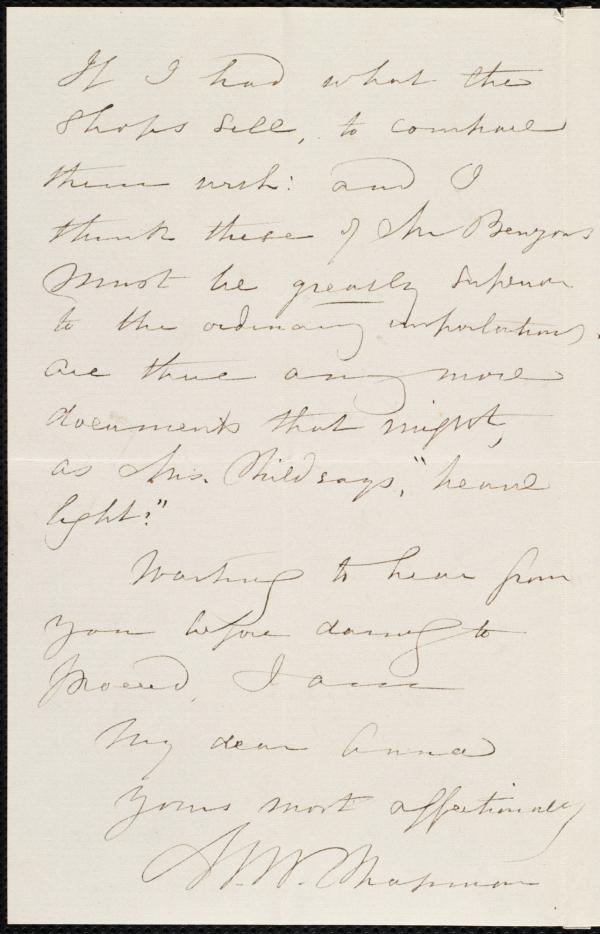 If I had what the
shops sell, to compare
them with: and I
think these of Mr Benzons
must be greatly superior
to the ordinary importations.
Are there any more
documents that might,
as Mrs. Child says, "heave
light?"
Waiting to hear from
you before daring to
proceed, I am
My dear Anna
Yours most affectionately
M. W. Chapman